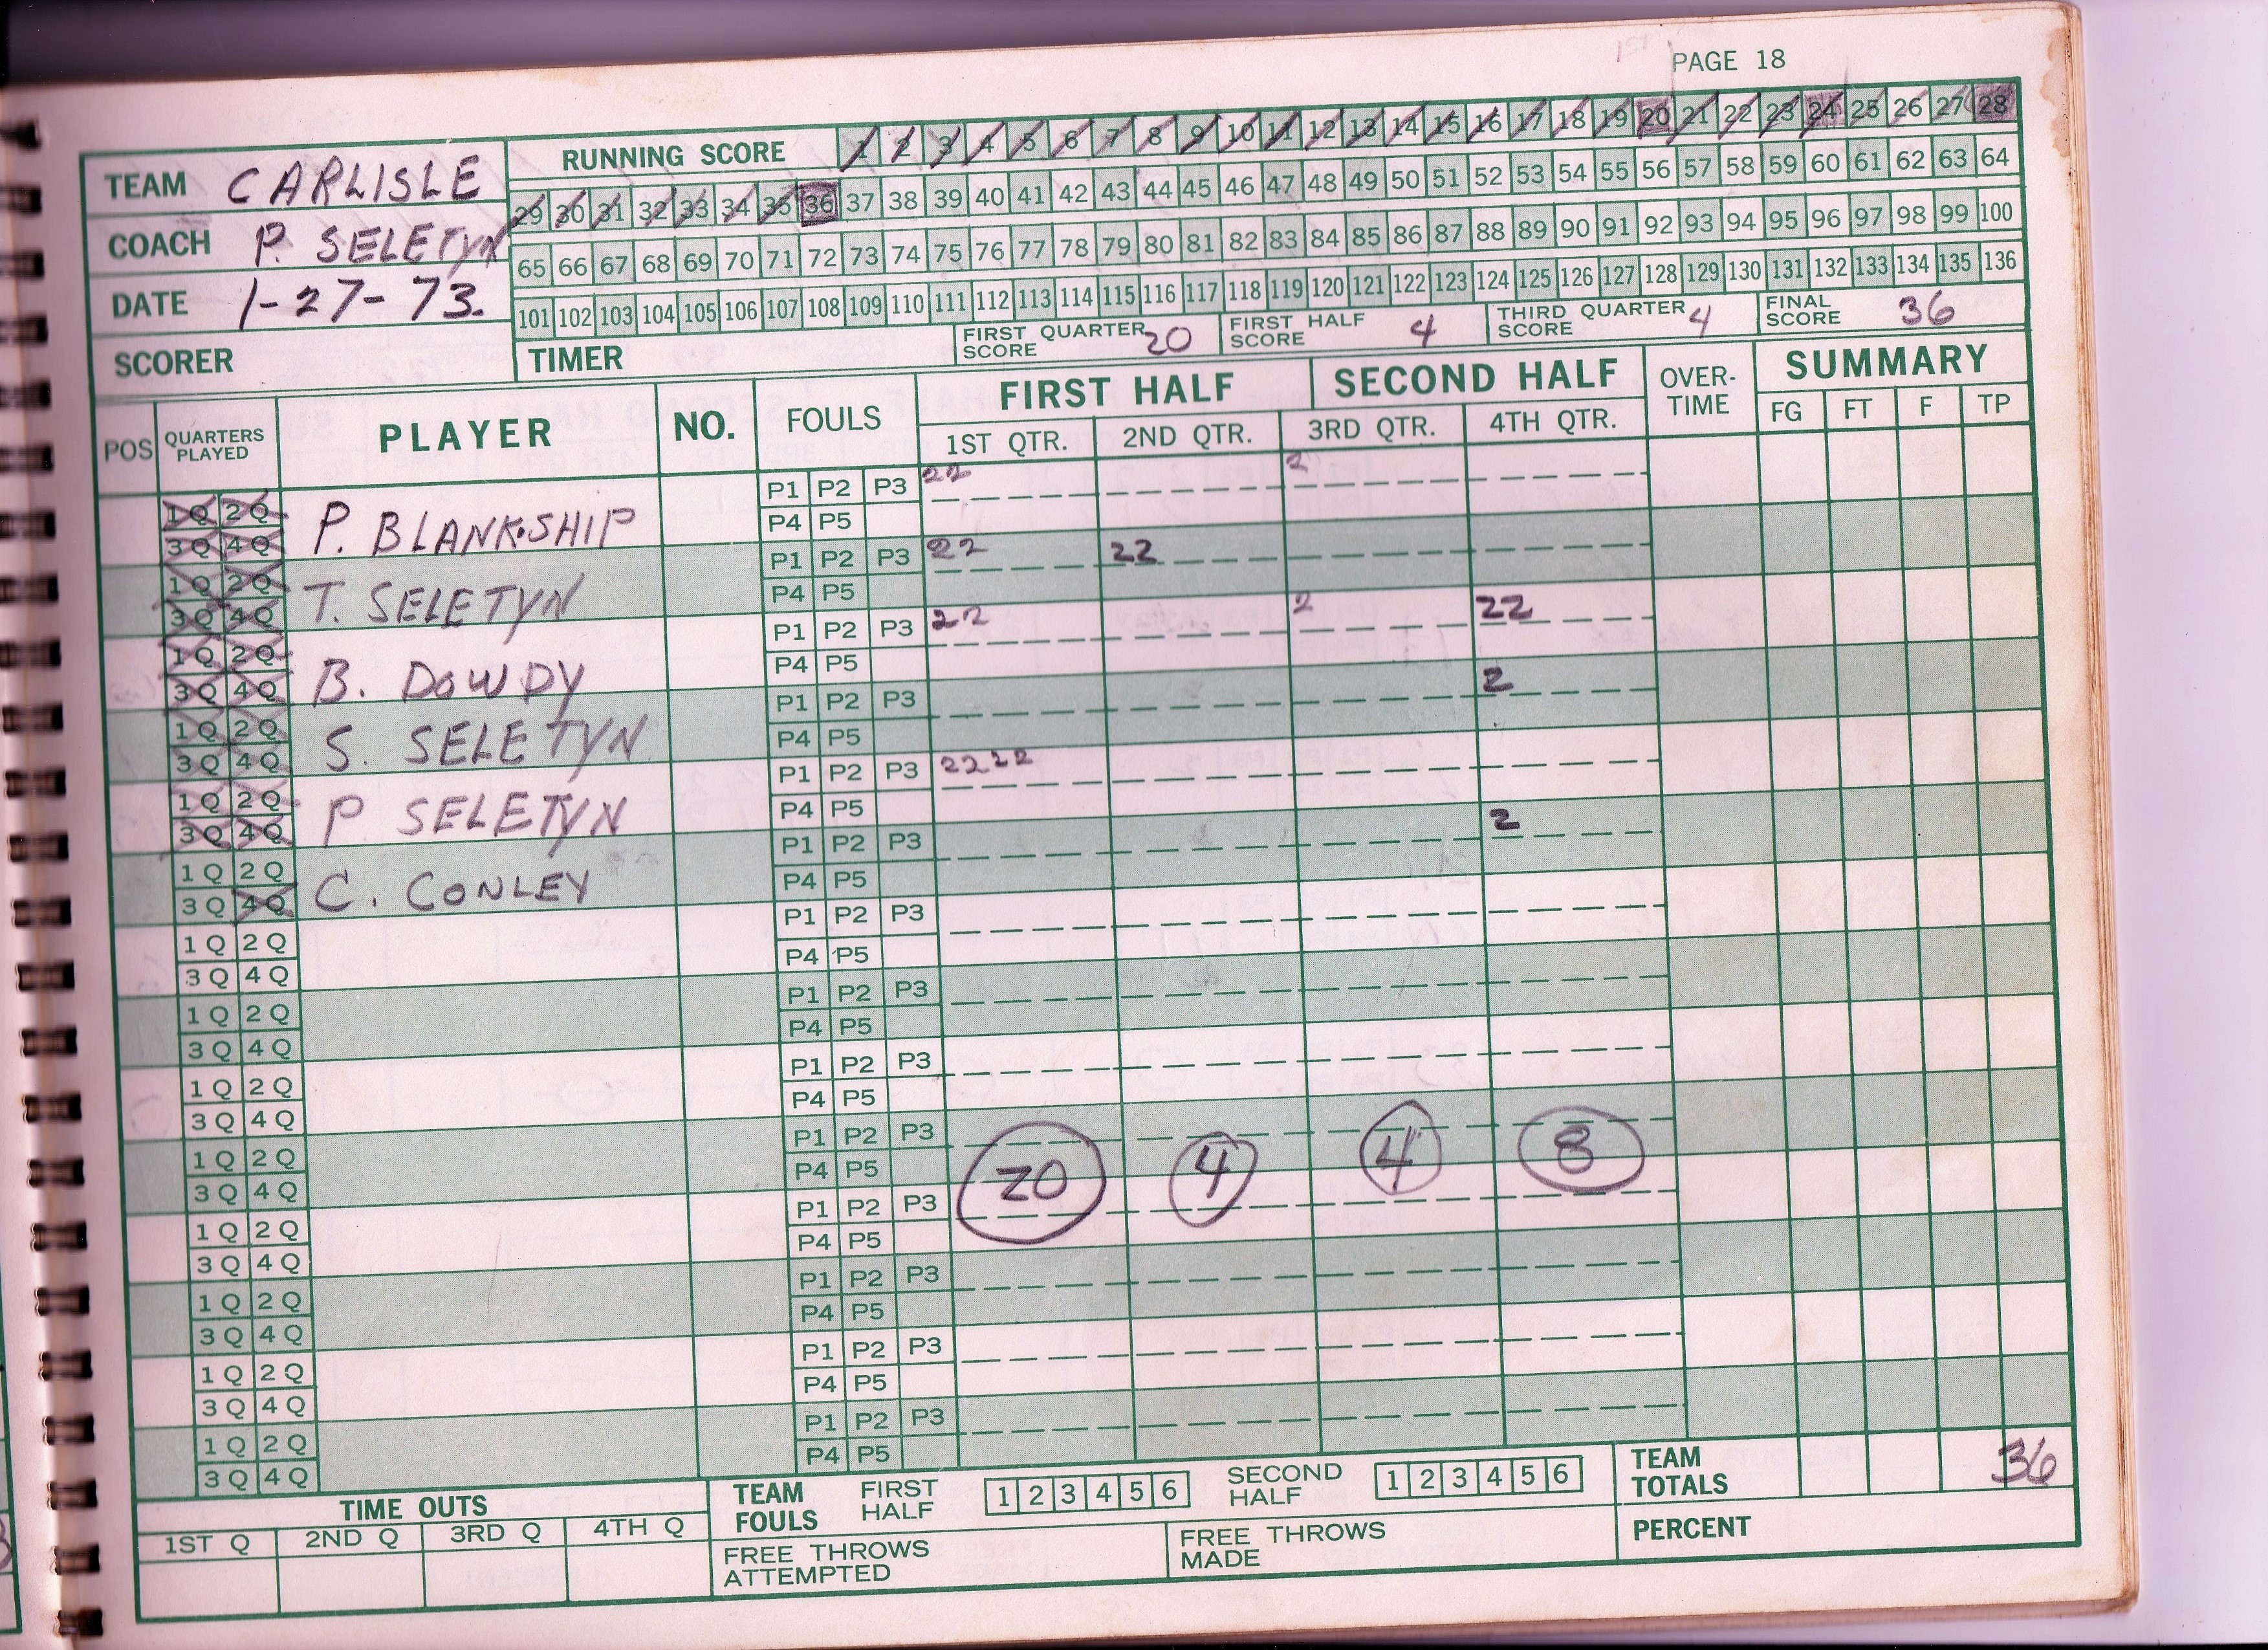 PAGE 18
TEAM CARLISLE
COACH P. SELETYN
DATE 1-27-73.
SCORER
TIMER
RUNNING SCORE 1 2 3 4 5 6 7 8 9 10 11 12 13 14 15 16 17 18 19 20 21 22 23 24 25 26 27 28
29 30 31 32 33 34 35 36 37 38 39 40 41 42 43 44 45 46 47 48 49 50 51 52 53 54 55 56 57 58 59 60 61 62 63 64
65 66 67 68 69 70 71 72 73 74 75 76 77 78 79 80 81 82 83 84 85 86 87 88 89 90 91 92 93 94 95 96 97 98 99 100
101 102 103 104 105 106 107 108 109 110 111 112 113 114 115 116 117 118 119 120 121 122 123 124 125 126 127 128 129 130 131 132 133 134 135 136
FIRST QUARTER SCORE 20 FIRST HALF SCORE 4 THIRD QUARTER SCORE 4 FINAL SCORE 36
POS QUARTERS PLAYED PLAYER NO. FOULS FIRST HALF SECOND HALF OVER-TIME SUMMARY
1ST QTR. 2ND QTR. 3RD QTR. 4TH QTR. FG FT F TP
1Q 2Q P. BLANKSHIP P1 P2 P3 22 2
3Q 4Q P4 P5
1Q 2Q T. SELETYN P1 P2 P3 22 22
3Q 4Q P4 P5
1Q 2Q B. DOWDY P1 P2 P3 22 2 22
3Q 4Q P4 P5
1Q 2Q S. SELETYN P1 P2 P3 2
3Q 4Q P4 P5
1Q 2Q P SELETYN P1 P2 P3 2222
3Q 4Q P4 P5
1Q 2Q C. CONLEY P1 P2 P3 2
3Q 4Q P4 P5
1Q 2Q P1 P2 P3
3Q 4Q P4 P5
1Q 2Q P1 P2 P3
3Q 4Q P4 P5
1Q 2Q P1 P2 P3
3Q 4Q P4 P5
1Q 2Q P1 P2 P3
3Q 4Q P4 P5
20 4 4 8
1Q 2Q P1 P2 P3
3Q 4Q P4 P5
1Q 2Q P1 P2 P3
3Q 4Q P4 P5
1Q 2Q P1 P2 P3
3Q 4Q P4 P5
1Q 2Q P1 P2 P3
3Q 4Q P4 P5
TIME OUTS
1ST Q 2ND Q 3RD Q 4TH Q
TEAM FOULS FIRST HALF 1 2 3 4 5 6 SECOND HALF 1 2 3 4 5 6
FREE THROWS ATTEMPTED
FREE THROWS MADE
TEAM TOTALS 36
PERCENT